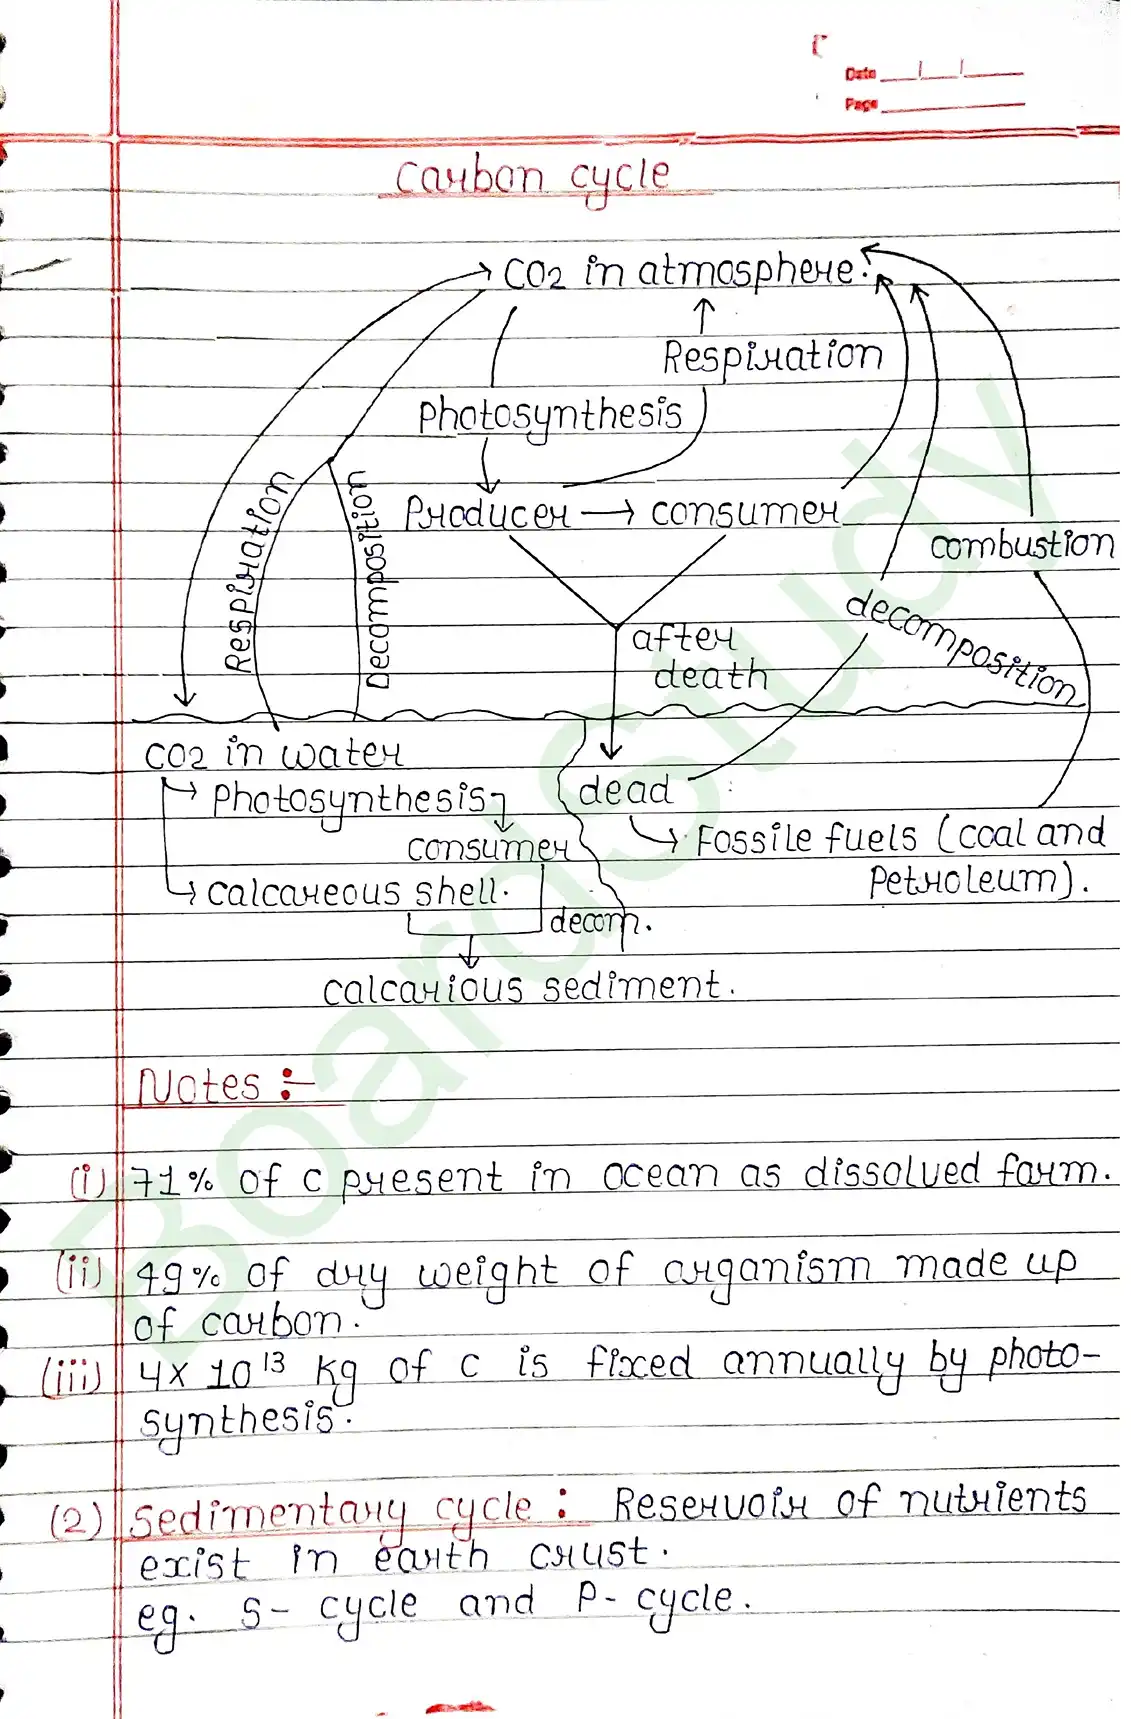 Date
Page
Carbon cycle
CO2 in atmosphere.
Respiration
Photosynthesis
Respiration
Decomposition
Producer → consumer
combustion
decomposition
after
death
CO2 in water
dead
Photosynthesis
consumer
Fossile fuels (coal and
Petroleum).
calcareous shell.
decom.
calcarious sediment.
Notes :-
(i) 71% of C present in ocean as dissolved form.
(ii) 49% of dry weight of organism made up
of carbon.
(iii) 4x 10¹³ Kg of C is fixed annually by photo-
synthesis.
(2) Sedimentary cycle : Reservoir of nutrients
exist in earth crust.
eg. S- cycle and P- cycle.
BoardStudy